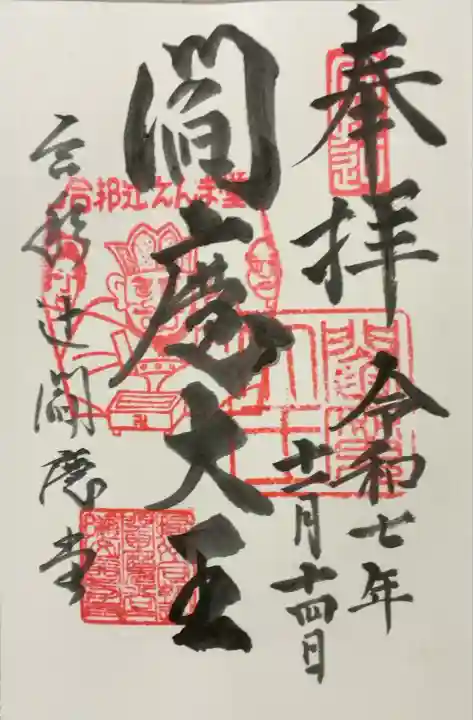 奉拝
令和七年
十二月十四日
閻魔大王
合邦辻えんま堂
合邦辻閻魔堂